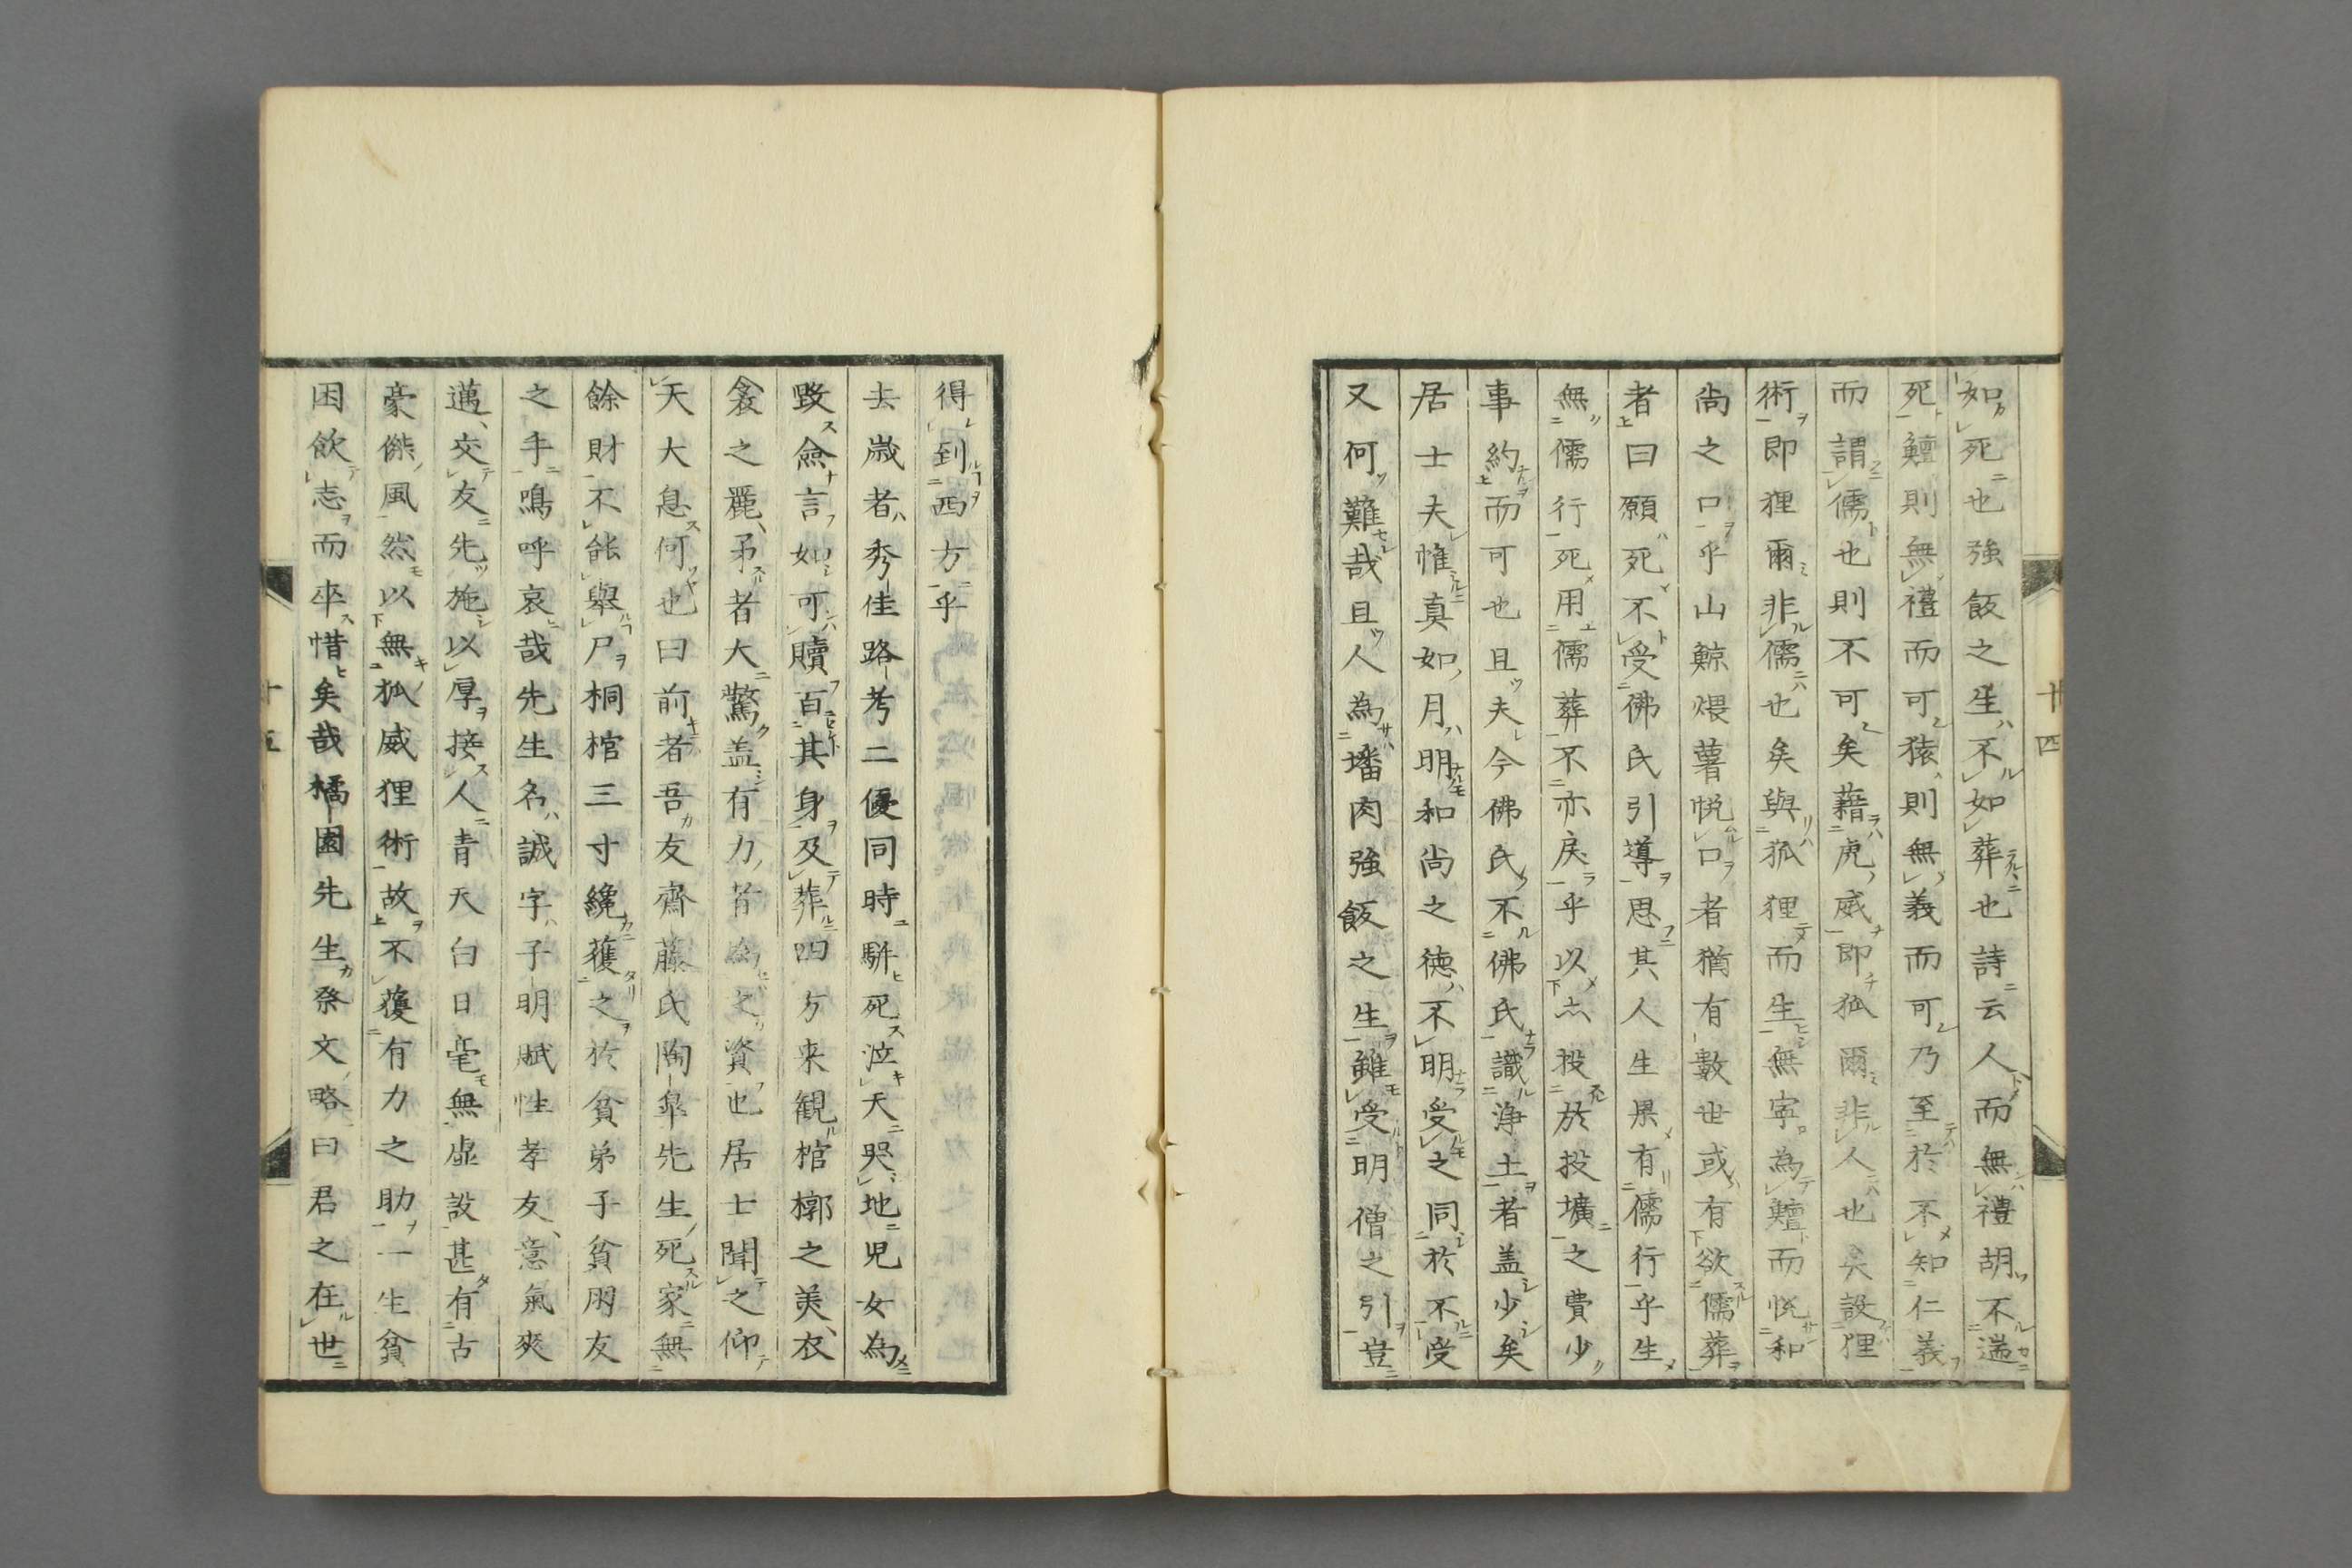 如死也強飯之生不如葬也詩云人而無禮胡不遄
死鱣則無禮而可猿則無義而可乃至於不知仁義
而謂儒也則不可矣藉虎威即狐爾非人也矣設狸
術即狸爾非儒也矣與狐狸而生無寧為鱣而悦和
尚之口乎山鯨煨薯悦口者猶有數世或有欲儒葬
者曰願死不受佛氏引導思其人生果有儒行乎生
無儒行死用儒葬不亦戾乎以亦投於投壙之費少
事約而可也且夫今佛氏不佛氏識淨土者盖少矣
居士夫惟真如月明和尚之德不明受之同於不受
又何難哉且人為墦肉強飯之生雖受明僧之引豈
十四
得到西方乎
去歳者秀佳路考二優同時駢死泣天哭地児女為
斂言如可贖百其身及葬四方来観棺槨之美衣
衾之麗弔者大驚盖有力者為之資也居士聞之仰
天大息何也曰前者吾友齋藤氏陶皐先生死家無
餘財不能舉尸桐棺三寸纔獲之於貧弟子貧朋友
之手嗚呼哀哉先生名誠字子明賦性孝友意氣爽
邁交友先施以厚接人青天白日毫無虚設甚有古
豪傑風然以無狐威狸術故不獲有力之助一生貧
困飲志而卒惜矣哉橘園先生祭文略曰君之在世
十五